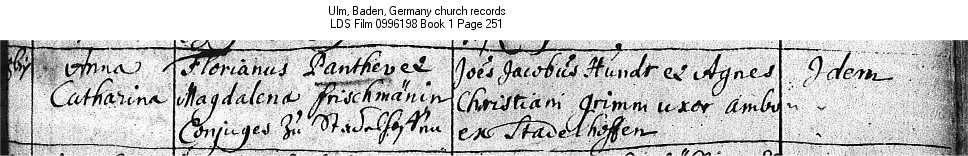 Ulm, Baden, Germany church records
LDS Film 0996198 Book 1 Page 251
Anna Florianus Panthever Joës Jacobus Hundt et Agnes Idem
Catharina Magdalena Frischmänin Christiani Grimm uxor ambo
Conjuges zu Stadelhoffen ex Stadelhoffen